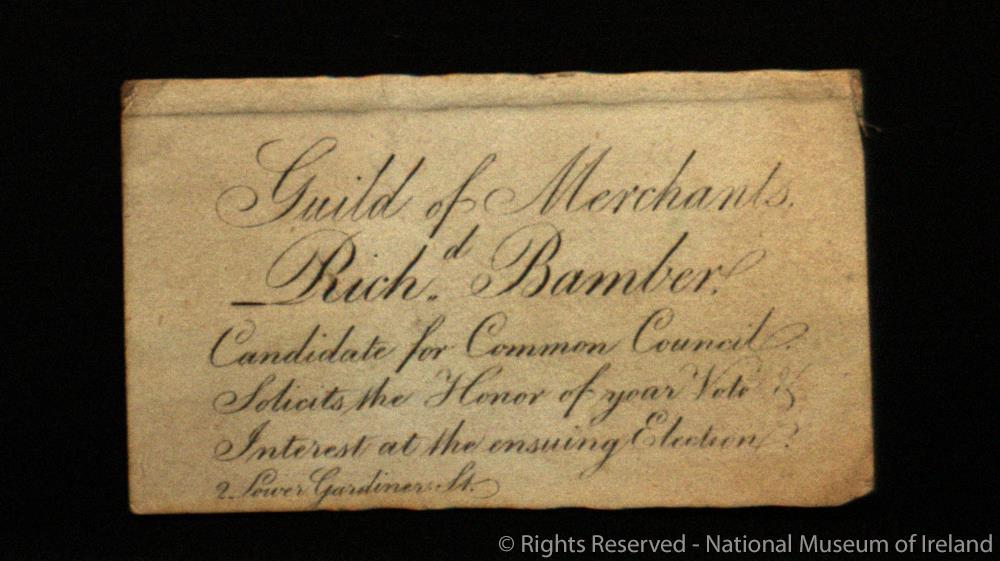 Guild of Merchants.
Rich.d Bamber.
Candidate for Common Council.
Solicits the Honor of your Vote &
Interest at the ensuing Election.
2. Lower Gardiner St.
© Rights Reserved - National Museum of Ireland